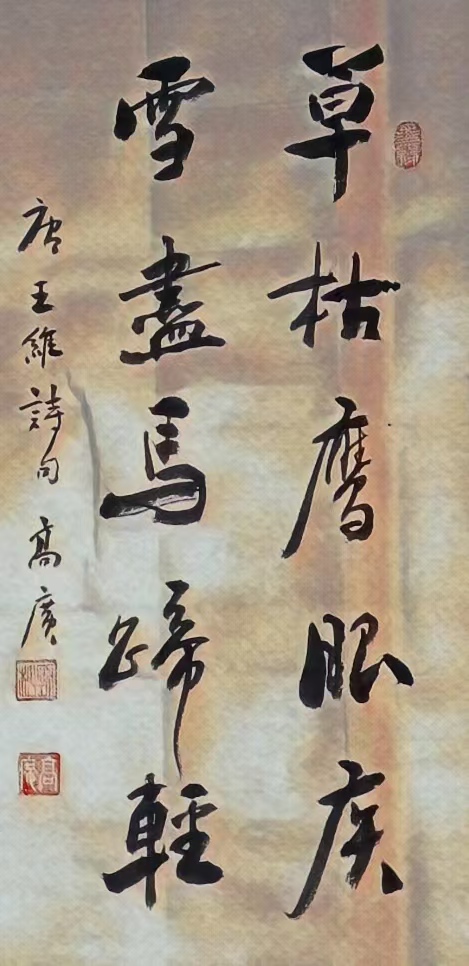 草枯鷹眼疾
雪盡馬蹄輕
唐王維詩句 高廣